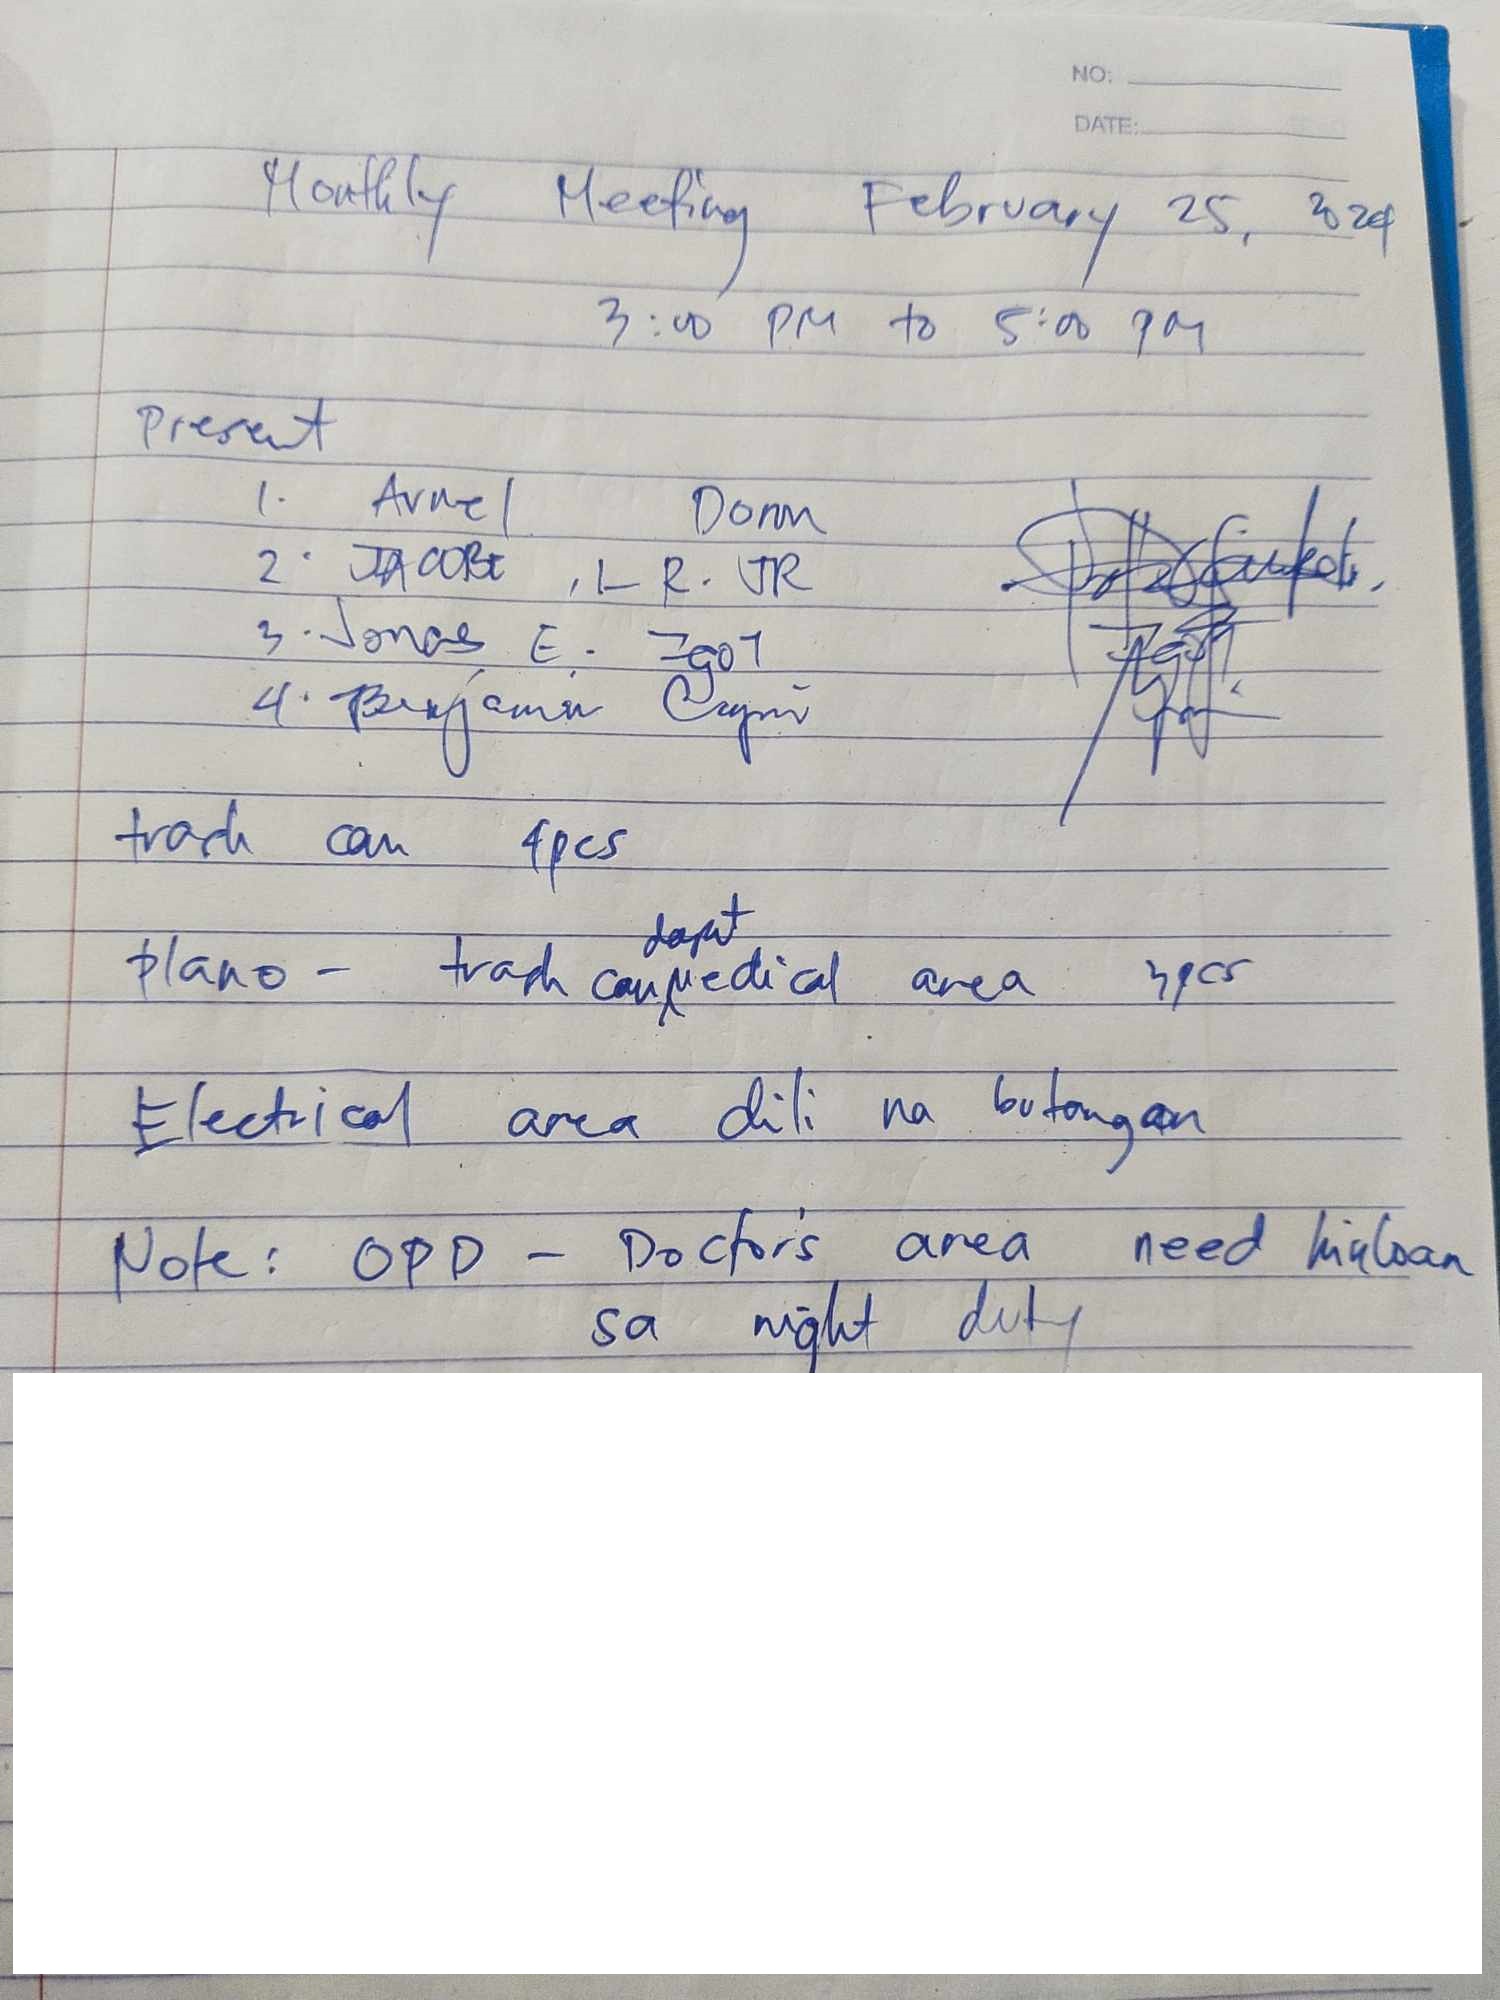 NO:
DATE:
Monthly Meeting February 25, 2024
3:00 PM to 5:00 PM
Present
1. Arnel
2. JACOBE, L R. JR
3. Jonas E. Igot
4. Benjamin
trash can 4pcs
dapat
plano - trash can medical area 3pcs
Electrical area dili na butangan
Note: OPD - Doctor's area need hinloan
sa night duty